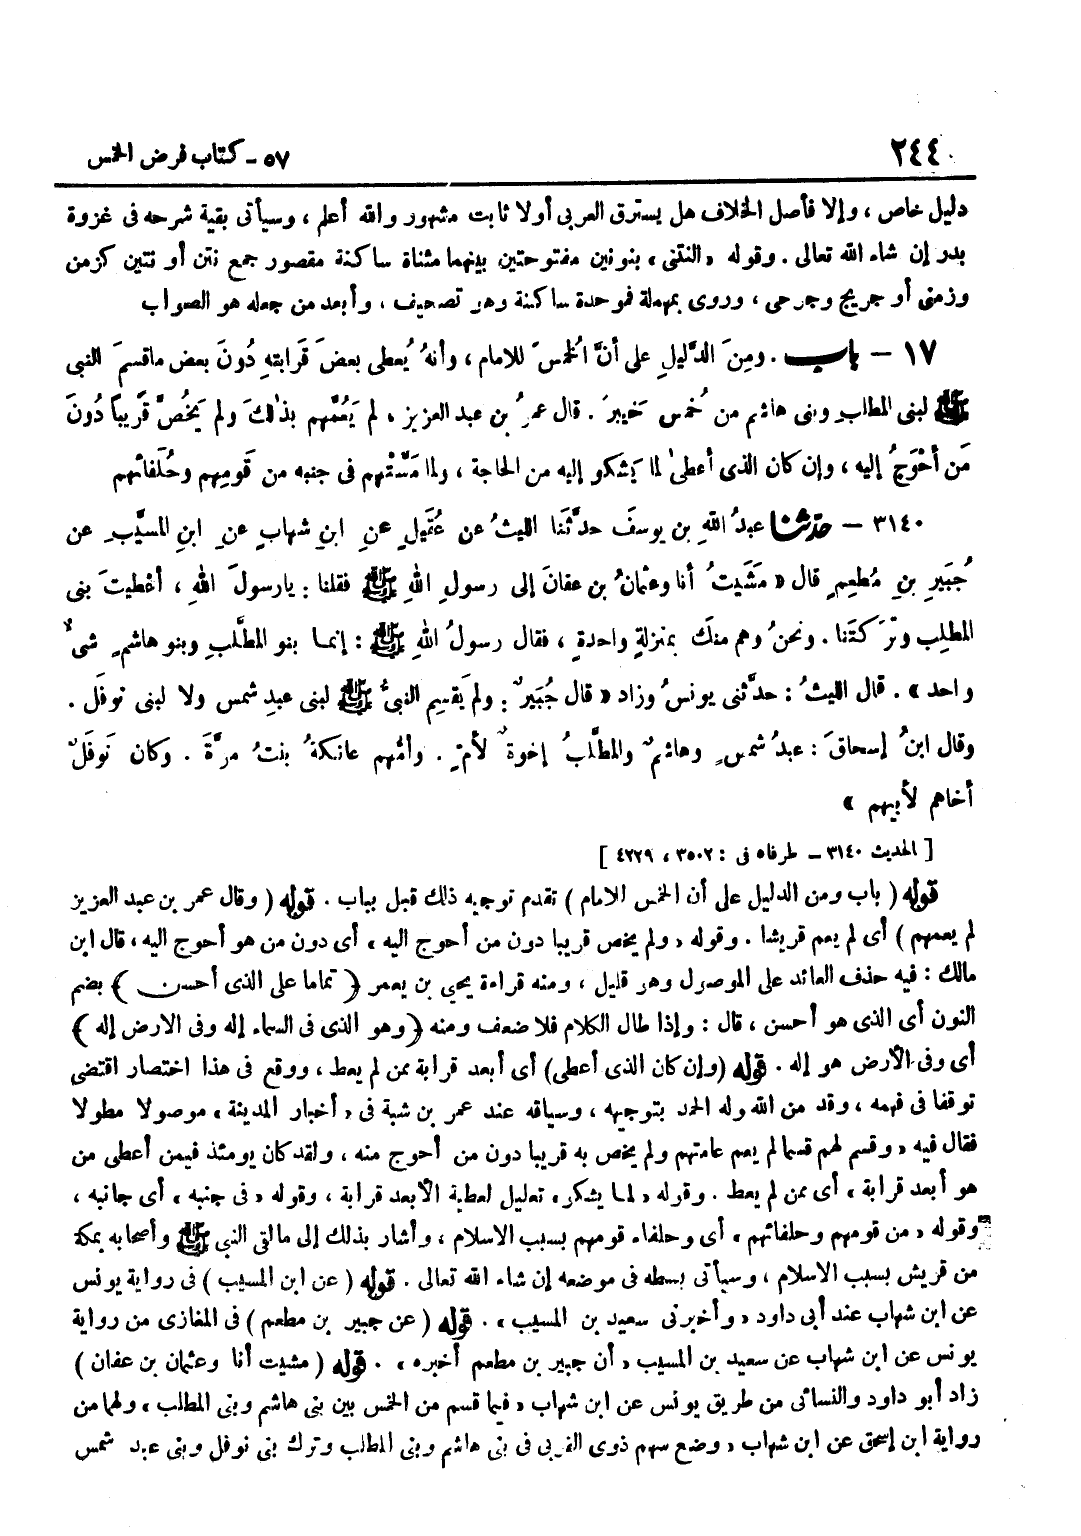 ٢٤٤
٥٧ - كتاب فرض الخمس
دليل خاص ، وإلا فأصل الخلاف هل يسترق العربى أولا ثابت مشهور والله أعلم ، وسيأتى بقية شرحه فى غزوة
بدر إن شاء الله تعالى . وقوله « النتنى » بنونين مفتوحتين بينهما مثناة ساكنة مقصور جمع نتن أو نتين كزمن
وزمنى أو جريح وجرحى ، وروى بمهملة فموحدة ساكنة وهو تصحيف ، وأبعد من جعله هو الصواب
١٧ - باب . ومِنَ الدَّليلِ على أنَّ الخُمسَ للامام ، وأنهُ يُعطى بعضَ قَرابتهِ دُونَ بعض ماقسمَ النبى
ﷺ لبنى المطلب وبنى هاشم من خُمس خيبرَ . قال عمرُ بن عبد العزيز ، لم يَعُمَّهم بذلكَ ولم يَخُصَّ قَريباً دُونَ
مَن أحْوَجُ إليه ، وإن كان الذى أعطىٰ لما يَشكو إليه من الحاجة ، ولما مَسَّتْهم فى جنبه من قَومِهم وحُلَفائهم
٣١٤٠ - حدّثنا عبدُ اللهِ بن يوسفَ حدَّثَنا الليثُ عن عُقَيلٍ عنِ ابنِ شهابٍ عنِ ابنِ المسيَّبِ عن
جُبَيرِ بنِ مُطعِمٍ قال « مَشَيتُ أنا وعثمانُ بن عفانَ إلى رسولِ اللهِ ﷺ فقلنا : يارسولَ اللهِ ، أعْطيتَ بنى
المطلِب وتَرَكتَنا . ونحنُ وهم منكَ بمنزلةٍ واحدةٍ ، فقال رسولُ اللهِ ﷺ : إنما بنو المطَّلبِ وبنو هاشمٍ شىءٌ
واحد » . قال الليثُ : حدَّثنى يونسُ وزاد « قال جُبَيرٌ : ولم يَقسِمِ النبىُّ ﷺ لبنى عبدِ شمس ولا لبنى نوفَل .
وقال ابنُ إسحاقَ : عبدُ شمسٍ وهاشمٌ والمطَّلبُ إخوةٌ لأمّ . وأمُّهم عاتكةُ بنتُ مرَّةَ . وكان نَوفَلٌ
أخاهم لأبيهم »
[ الحديث ٣١٤٠ - طرفاه فى : ٣٥٠٢ ، ٤٢٢٩ ]
قوله ( باب ومن الدليل على أن الخمس للامام ) تقدم توجيه ذلك قبل بباب . قوله ( وقال عمر بن عبد العزيز
لم يعمهم ) أى لم يعم قريشا . وقوله « ولم يخص قريبا دون من أحوج اليه » أى دون من هو أحوج اليه ، قال ابن
مالك : فيه حذف العائد على الموصول وهو قليل ، ومنه قراءة يحيى بن يعمر ﴿ تماما على الذى أحسن ﴾ بضم
النون أى الذى هو أحسن ، قال : وإذا طال الكلام فلا ضعف ومنه ﴿ وهو الذى فى السماء إله وفى الارض إله ﴾
أى وفى الأرض هو إله . قوله ( وإن كان الذى أعطى ) أى أبعد قرابة ممن لم يعط ، ووقع فى هذا اختصار اقتضى
توقفا فى فهمه ، وقد من الله وله الحمد بتوجيهه ، وسياقه عند عمر بن شبة فى « أخبار المدينة » موصولا مطولا
فقال فيه « وقسم لهم قسما لم يعم عامتهم ولم يخص به قريبا دون من أحوج منه ، ولقد كان يومئذ فيمن أعطى من
هو أبعد قرابة » أى ممن لم يعط . وقوله « لما يشكو » تعليل لعطية الأبعد قرابة ، وقوله « فى جنبه » أى جانبه ،
وقوله « من قومهم وحلفائهم » أى وحلفاء قومهم بسبب الاسلام ، وأشار بذلك إلى مالقى النبى ﷺ وأصحابه بمكة
من قريش بسبب الاسلام ، وسيأتى بسطه فى موضعه إن شاء الله تعالى . قوله ( عن ابن المسيب ) فى رواية يونس
عن ابن شهاب عند أبى داود « وأخبرنى سعيد بن المسيب » . قوله ( عن جبير بن مطعم ) فى المغازى من رواية
يونس عن ابن شهاب عن سعيد بن المسيب « أن جبير بن مطعم أخبره » . قوله ( مشيت أنا وعثمان بن عفان )
زاد أبو داود والنسائى من طريق يونس عن ابن شهاب « فيما قسم من الخمس بين بنى هاشم وبنى المطلب » ولهما من
رواية ابن إسحق عن ابن شهاب « وضع سهم ذوى القربى فى بنى هاشم وبنى المطلب وترك بنى نوفل وبنى عبد شمس